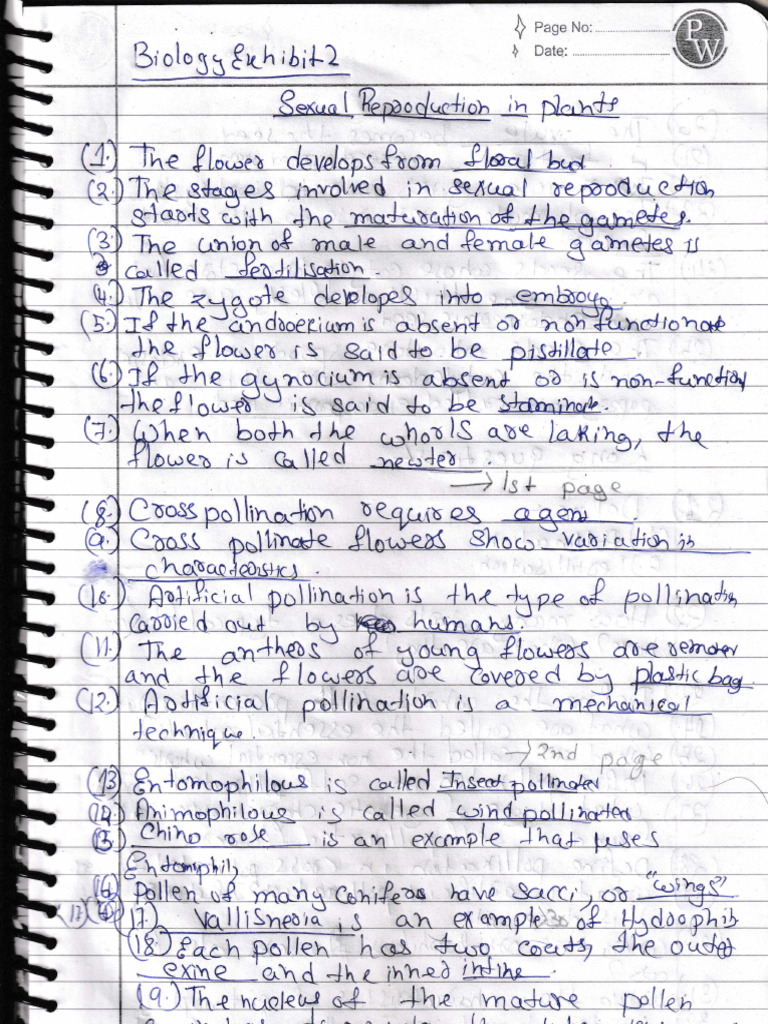 Page No:
Date:
PW
Biology Exhibit 2
Sexual Reproduction in plants
(1.) The flower develops from floral bud.
(2.) The stages involved in sexual reproduction
starts with the maturation of the gametes.
(3.) The union of male and female gametes is
called fertilisation.
(4.) The zygote developes into embroyo.
(5.) If the androecium is absent or non functional
the flower is said to be pistillate.
(6.) If the gynocium is absent or is non-function
the flower is said to be staminate.
(7.) When both the whorls are laking, the
flower is called newter.
→ 1st page
(8.) Cross pollination requires agent.
(9.) Cross pollinate flowers show variation in
characteristics.
(10.) Artificial pollination is the type of pollination
carried out by humans.
(11.) The anthers of young flowers are remover
and the flowers are covered by plastic bag.
(12.) Artificial pollination is a mechanical
technique.
→ 2nd page
(13) Entomophilous is called Insect pollinater
(14.) Animophilous is called wind pollinater
(15) China rose is an example that uses
Entomophily
(16) Pollen of many conifers have sacci, or "wings"
17.) Vallisneria is an example of Hydrophis
(18.) Each pollen has two coats, the outer
exine and the inner intine.
(9.) The nucleus of the mature pollen